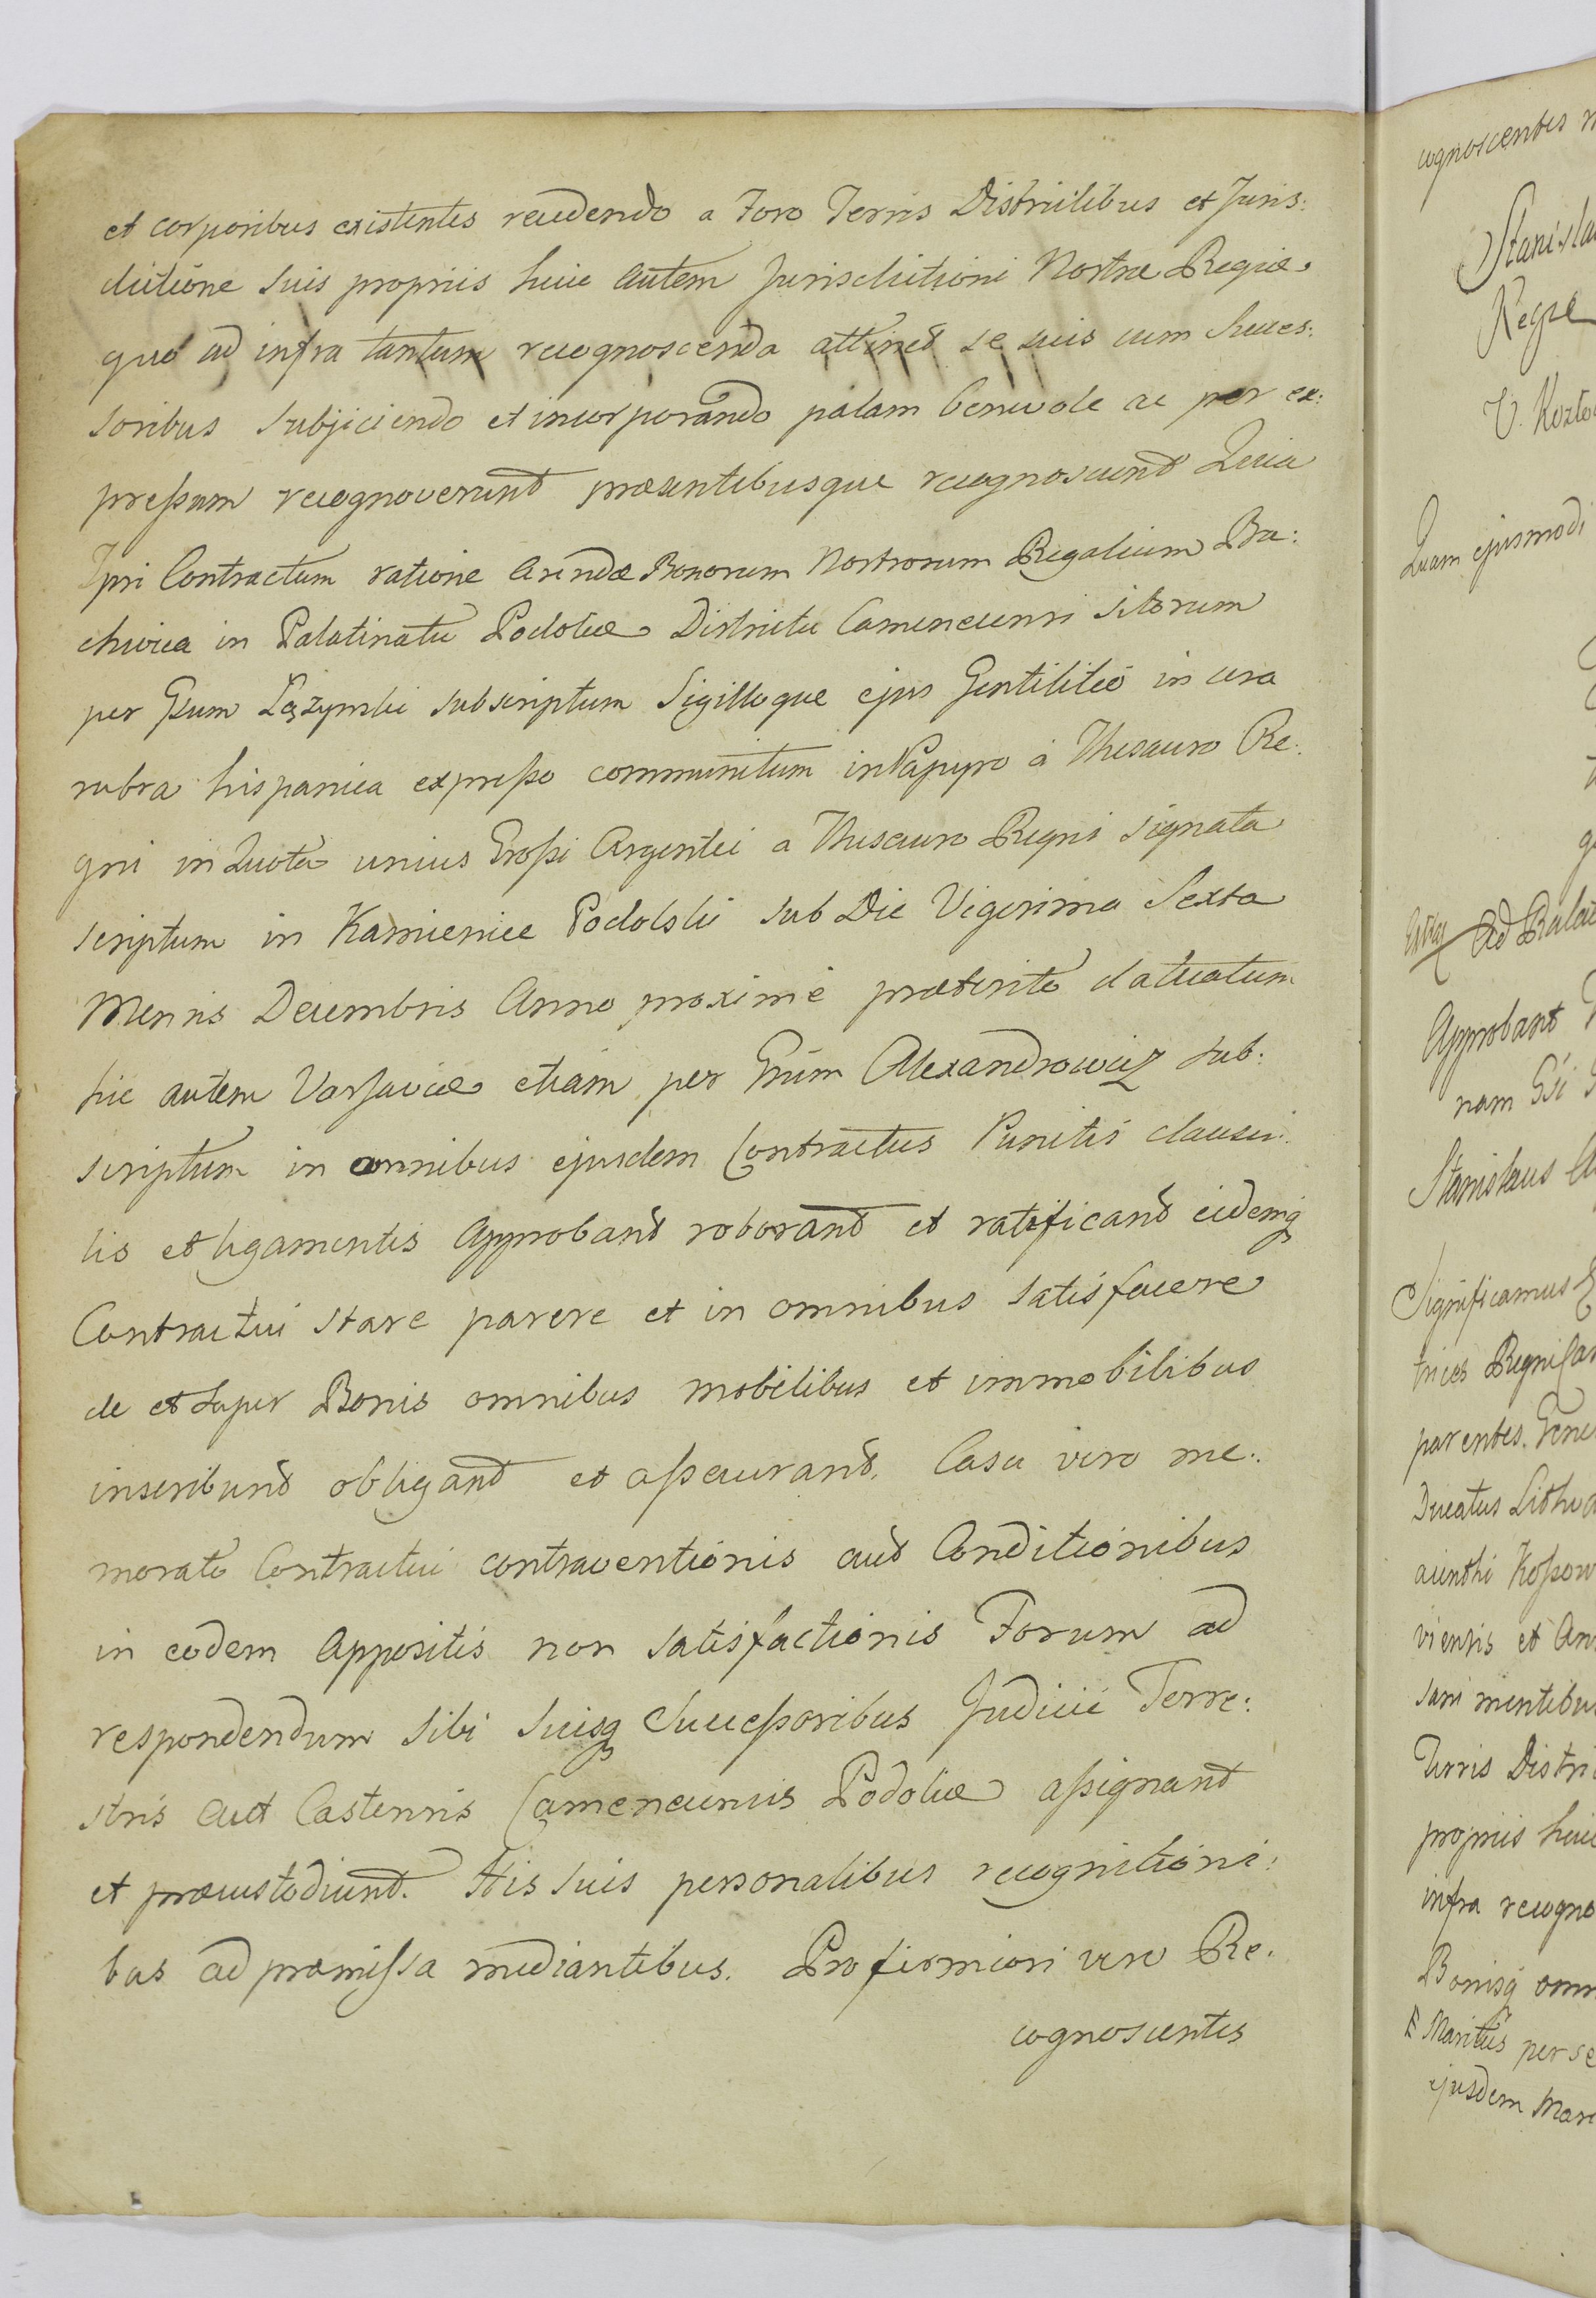 et corporibus existentes recedendo a Foro Terris Districtibus et Juris:
dictione suis propriis huic autem Jurisdictioni Nostræ Regiæ
quo ad infra tantum recognoscenda attinet se suis cum succes:
soribus subjiciendo et incorporando palam benevole ac per ex:
preßum recognoverunt præsentibusque recognoscunt Quia
Ipsi Contractum ratione Arendæ Bonorum Nostrorum Regalium Ba:
chwica in Palatinatu Podoliæ Districtu Camenecensi sitorum
per Gsum subscriptum Sigilloque ejus Gentilitio in cera
rubra hispanica expreßo communitum in Papyro a Thesauro Re:
gni in Quota unius Großi Argentei a Thesauro Regni signata
scriptum in Kamieniec Podolski sub Die Vigesima Sexta
Mensis Decembris Anno proxime præterito datuatum
hic autem Varsaviæ etiam per Gsum Alexandrowicz sub:
scriptum in omnibus ejusdem Contractus Punctis clausu:
lis et ligamentis Approbant roborant et ratificant eidemq
Contractui stare parere et in omnibus satisfacere
de et super Bonis omnibus mobilibus et immobilibus
inscribunt obligant et aßecurant. Casu vero me:
morato Contractui contraventionis aut Conditionibus
in eodem Appositis non satisfactionis Forum ad
respondendum sibi suisq Succeßoribus Judicii Terre:
stris aut Castensis Camenecensis Podoliæ aßignant
et præcustodiunt. His suis personalibus recognitioni:
bus ad præmissa mediantibus. Pro firmiori vero Re:
cognoscentes
cognoscentes
Regie
Quam ejusmodi
Ad
Approbant
nam Gsi
Stanislaus
Significamus
trices Regni
parentes.
Ducatus
viensis et
sani mentibus
Terris
propriis
infra
Bonisq
Maritus per se
ejusdem